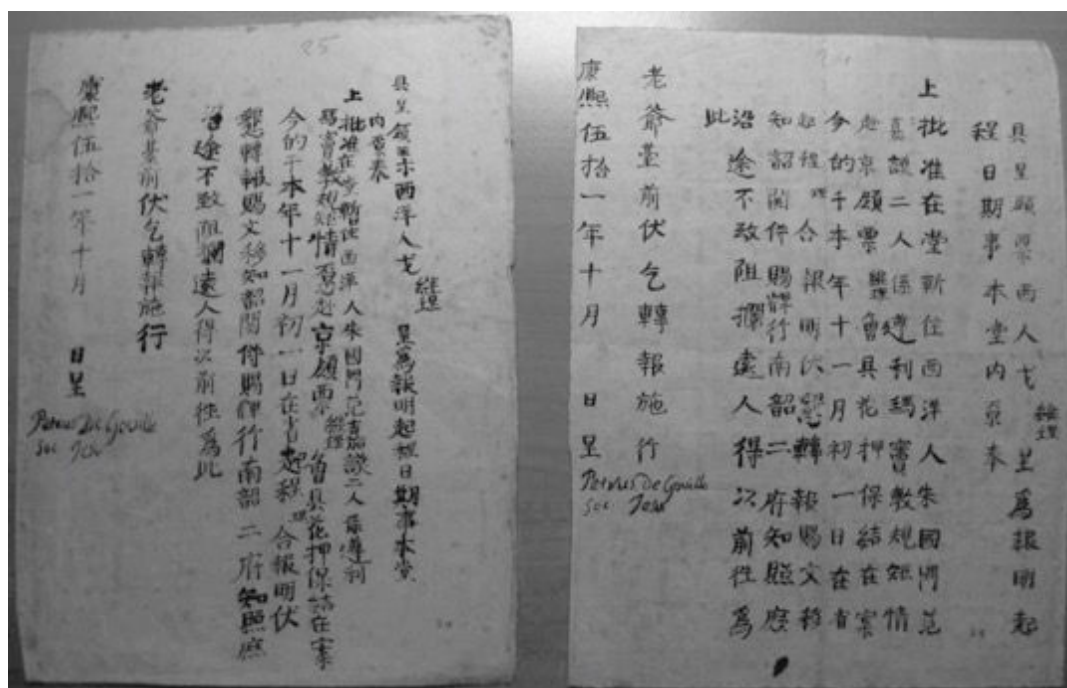 具呈領票西人戈維理呈為報明起
程日期事本堂內京奉
上批准在堂暫住西洋人朱國門范
嘉謨二人係遵利瑪竇教規矩情
赴京領票維理會具花押保結在案
今的于本年十一月初一日在省
起程理合報明伏懇轉報賜文移
知韶關併賜牌行南韶二府知照庶
沿途不致阻攔遠人得以前往為
此
老爺臺前伏乞轉報施行
康熙伍拾一年十月 日呈
Petrus De Goville
Soc Jesu
25
具呈領票西洋人戈維理 呈為報明起程日期事本堂
內京奉
上批准在堂暫住西洋人朱國門范嘉謨二人係遵利
瑪竇教規矩情愿赴京領票維理會具花押保結在案
今的于本年十一月初一日在省起程理合報明伏
懇轉報賜文移知韶關併賜牌行南韶二府知照庶
沿途不致阻攔遠人得以前往為此
老爺臺前伏乞轉報施行
康熙伍拾一年十月 日呈
Petrus De Goville
Soc Jesu